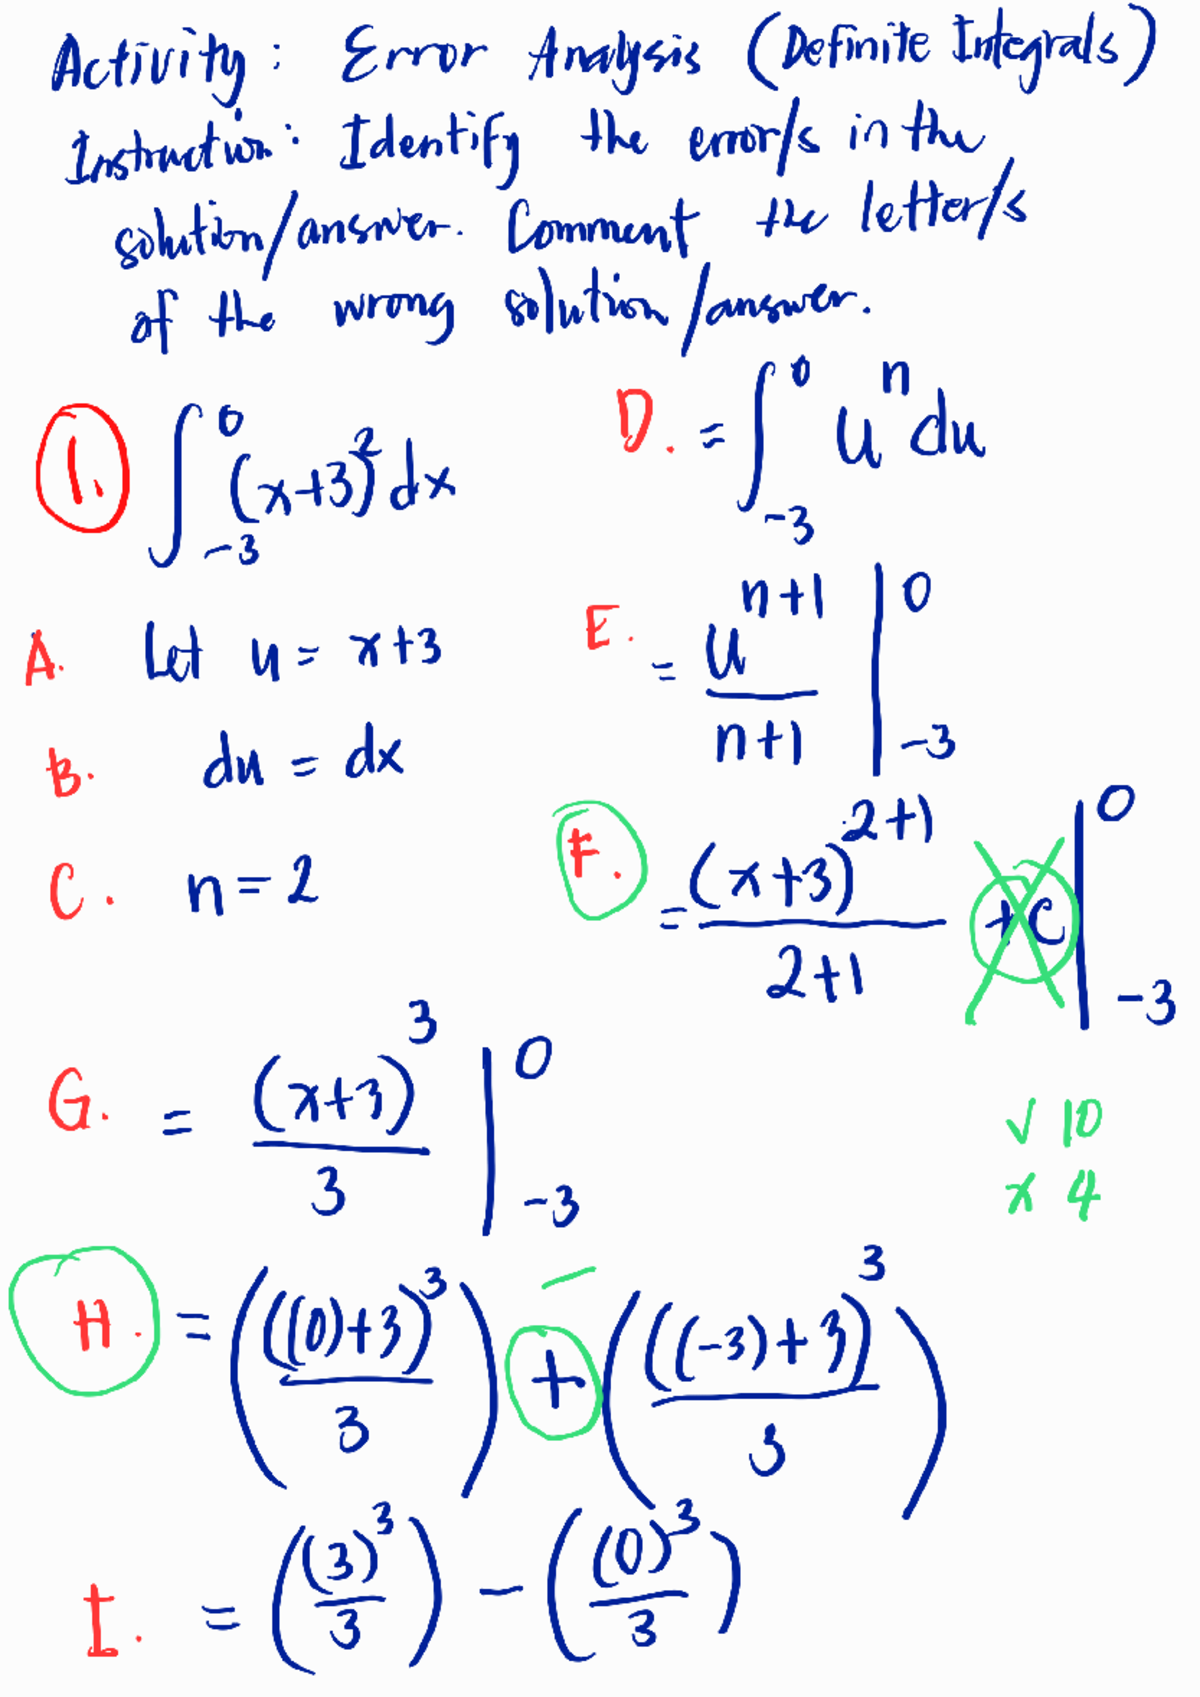 Activity: Error Analysis (Definite Integrals)
Instruction: Identify the error/s in the
solution/answer. Comment the letter/s
of the wrong solution/answer.
1. ∫_{-3}^{0} (x+3)² dx
A. Let u = x+3
B. du = dx
C. n = 2
D. = ∫_{-3}^{0} uⁿ du
E. = u^{n+1}/(n+1) |_{-3}^{0}
F. = (x+3)^{2+1}/(2+1) +C |_{-3}^{0}
G. = (x+3)³/3 |_{-3}^{0}
√ 10
x 4
H. = (((0)+3)³/3) + (((-3)+3)³/3)
−
I. = ((3)³/3) − ((0)³/3)